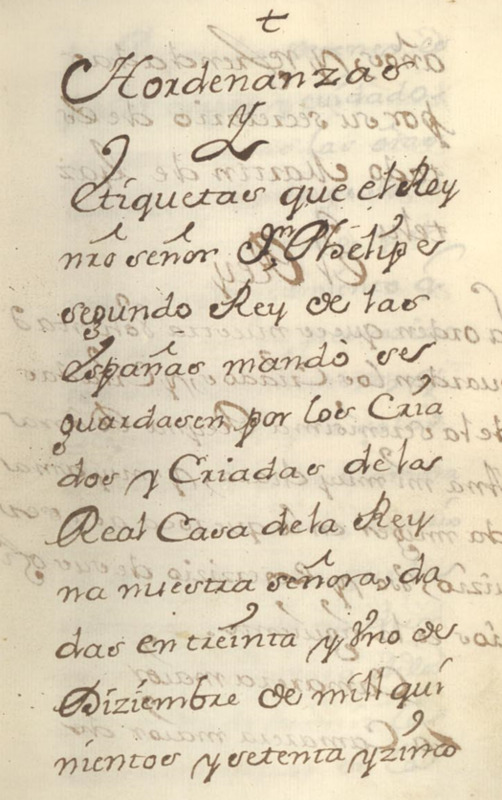 †
Hordenanzas
Y
Etiquetas que el Rey
nrō señor Dⁿ Phelipe
segundo Rey de las
Españas mandò se
guardasen por los Cria
dos y Criadas de la
Real Casa de la Rey
na nuestra señora, da
das en treinta y Vno de
Diziembre de mill qui
nientos y setenta y zinco